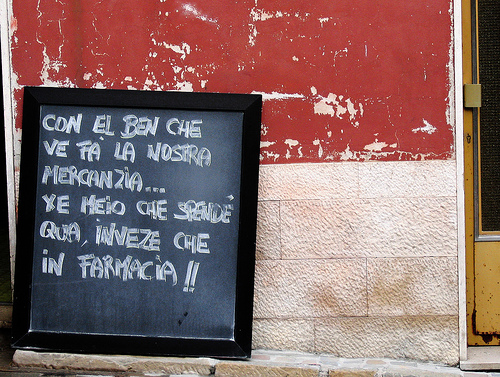 CON EL BEN CHE
VE FA LA NOSTRA
MERCANZIA...
XE MEIO CHE SPENDÉ
QUA, INVEZE CHE
IN FARMACIA!!